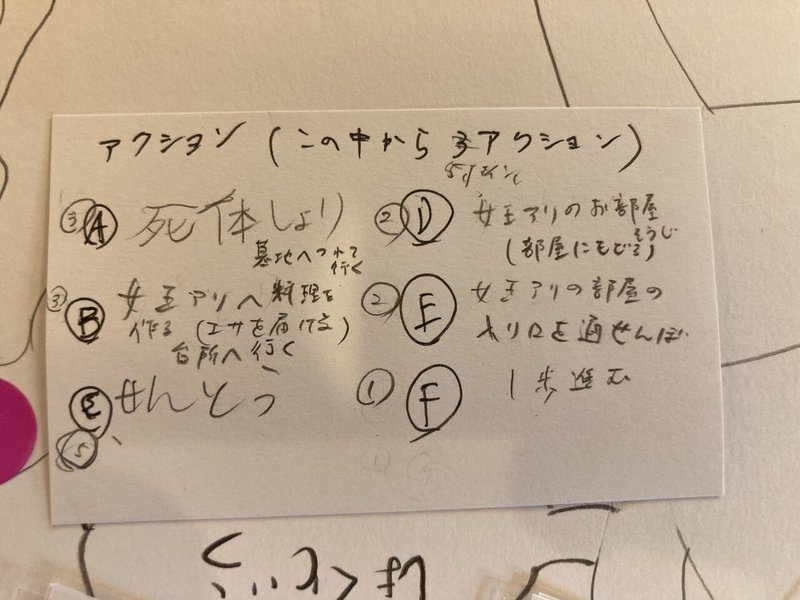 アクション (この中から 3アクション)
5ポイント
③ A 死体しょり
墓地へつれて
行く
③ B 女王アリへ料理を
作る (エサを届ける)
台所へ行く
C せんとう
⑤
② D 女王アリのお部屋
そうじ
(部屋にもどる)
② E 女王アリの部屋の
入り口を通せんぼ
① F 1歩進む